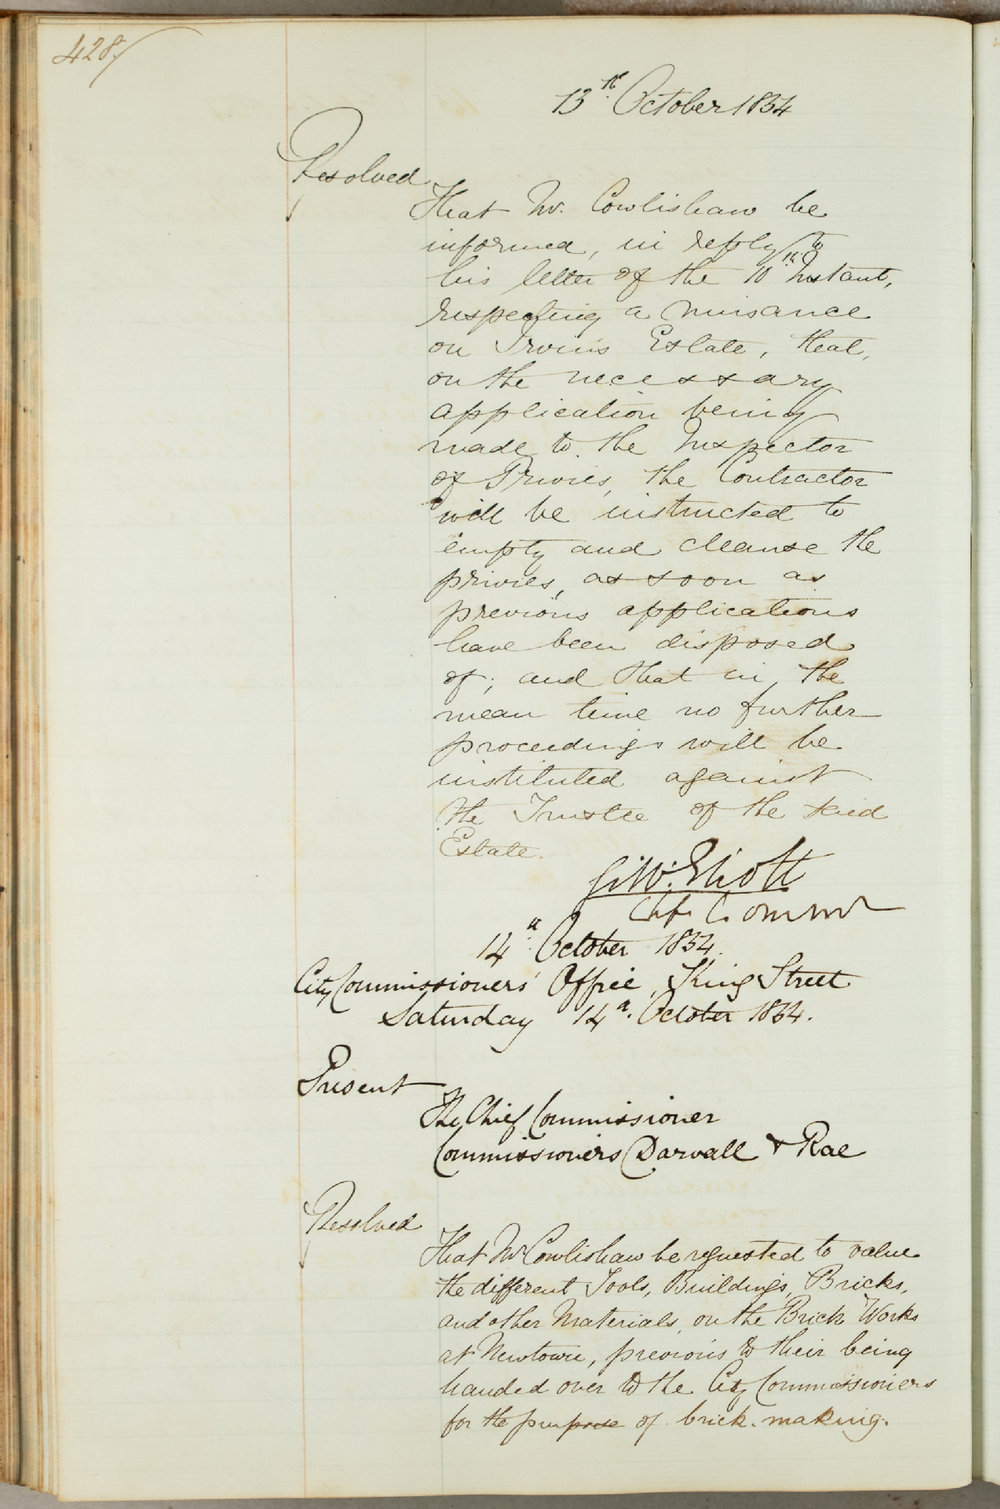 428.
13th October 1854
Resolved
That Mr. Cowlishaw be
informed, in reply to
his letter of the 10th Instant,
respecting a nuisance
on Irvin's Estate, that,
on the necessary
application being
made to the Inspector
of Privies, the Contractor
will be instructed to
empty and cleanse the
privies, as soon as
previous applications
have been disposed
of; and that in the
mean time no further
proceedings will be
instituted against
the Trustee of the said
Estate.
G. W. Eliott
Chf. Commr
14th October 1854.
City Commissioners' Office, King Street
Saturday 14th October 1854.
Present
The Chief Commissioner
Commissioners Darvall & Rae
Resolved
That Mr Cowlishaw be requested to value
the different Tools, Buildings, Bricks,
and other Materials, on the Brick Works
at Newtown, previous to their being
handed over to the City Commissioners
for the purpose of brick-making.